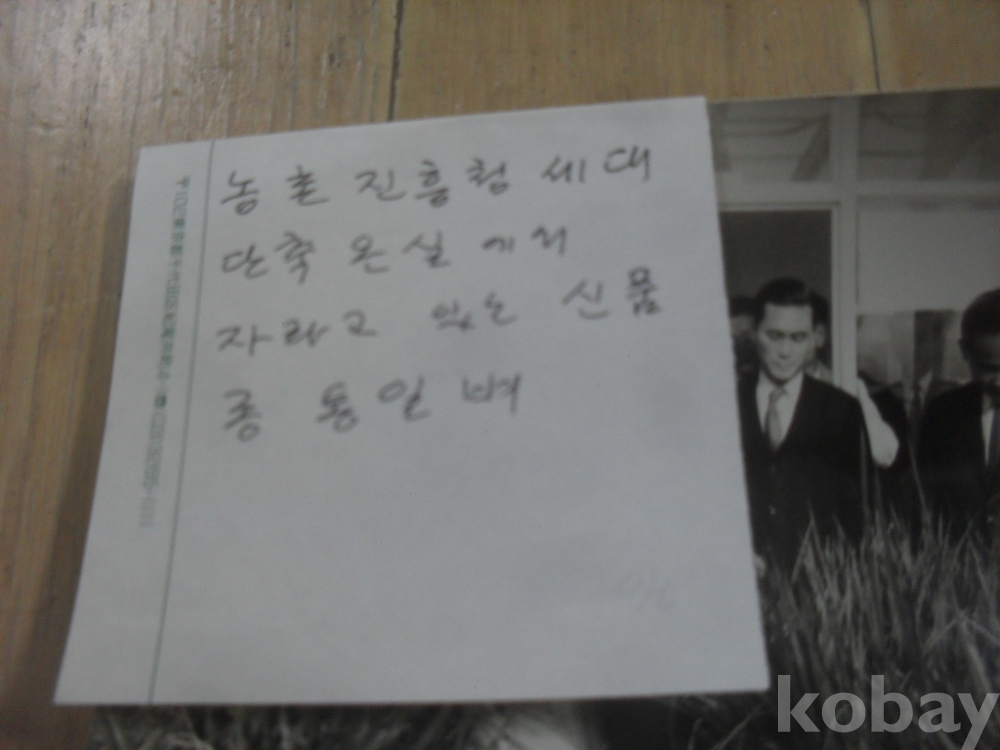 농촌 진흥청 세대
단축 온실에서
자라고 있는 신품
종 통일벼
kobay